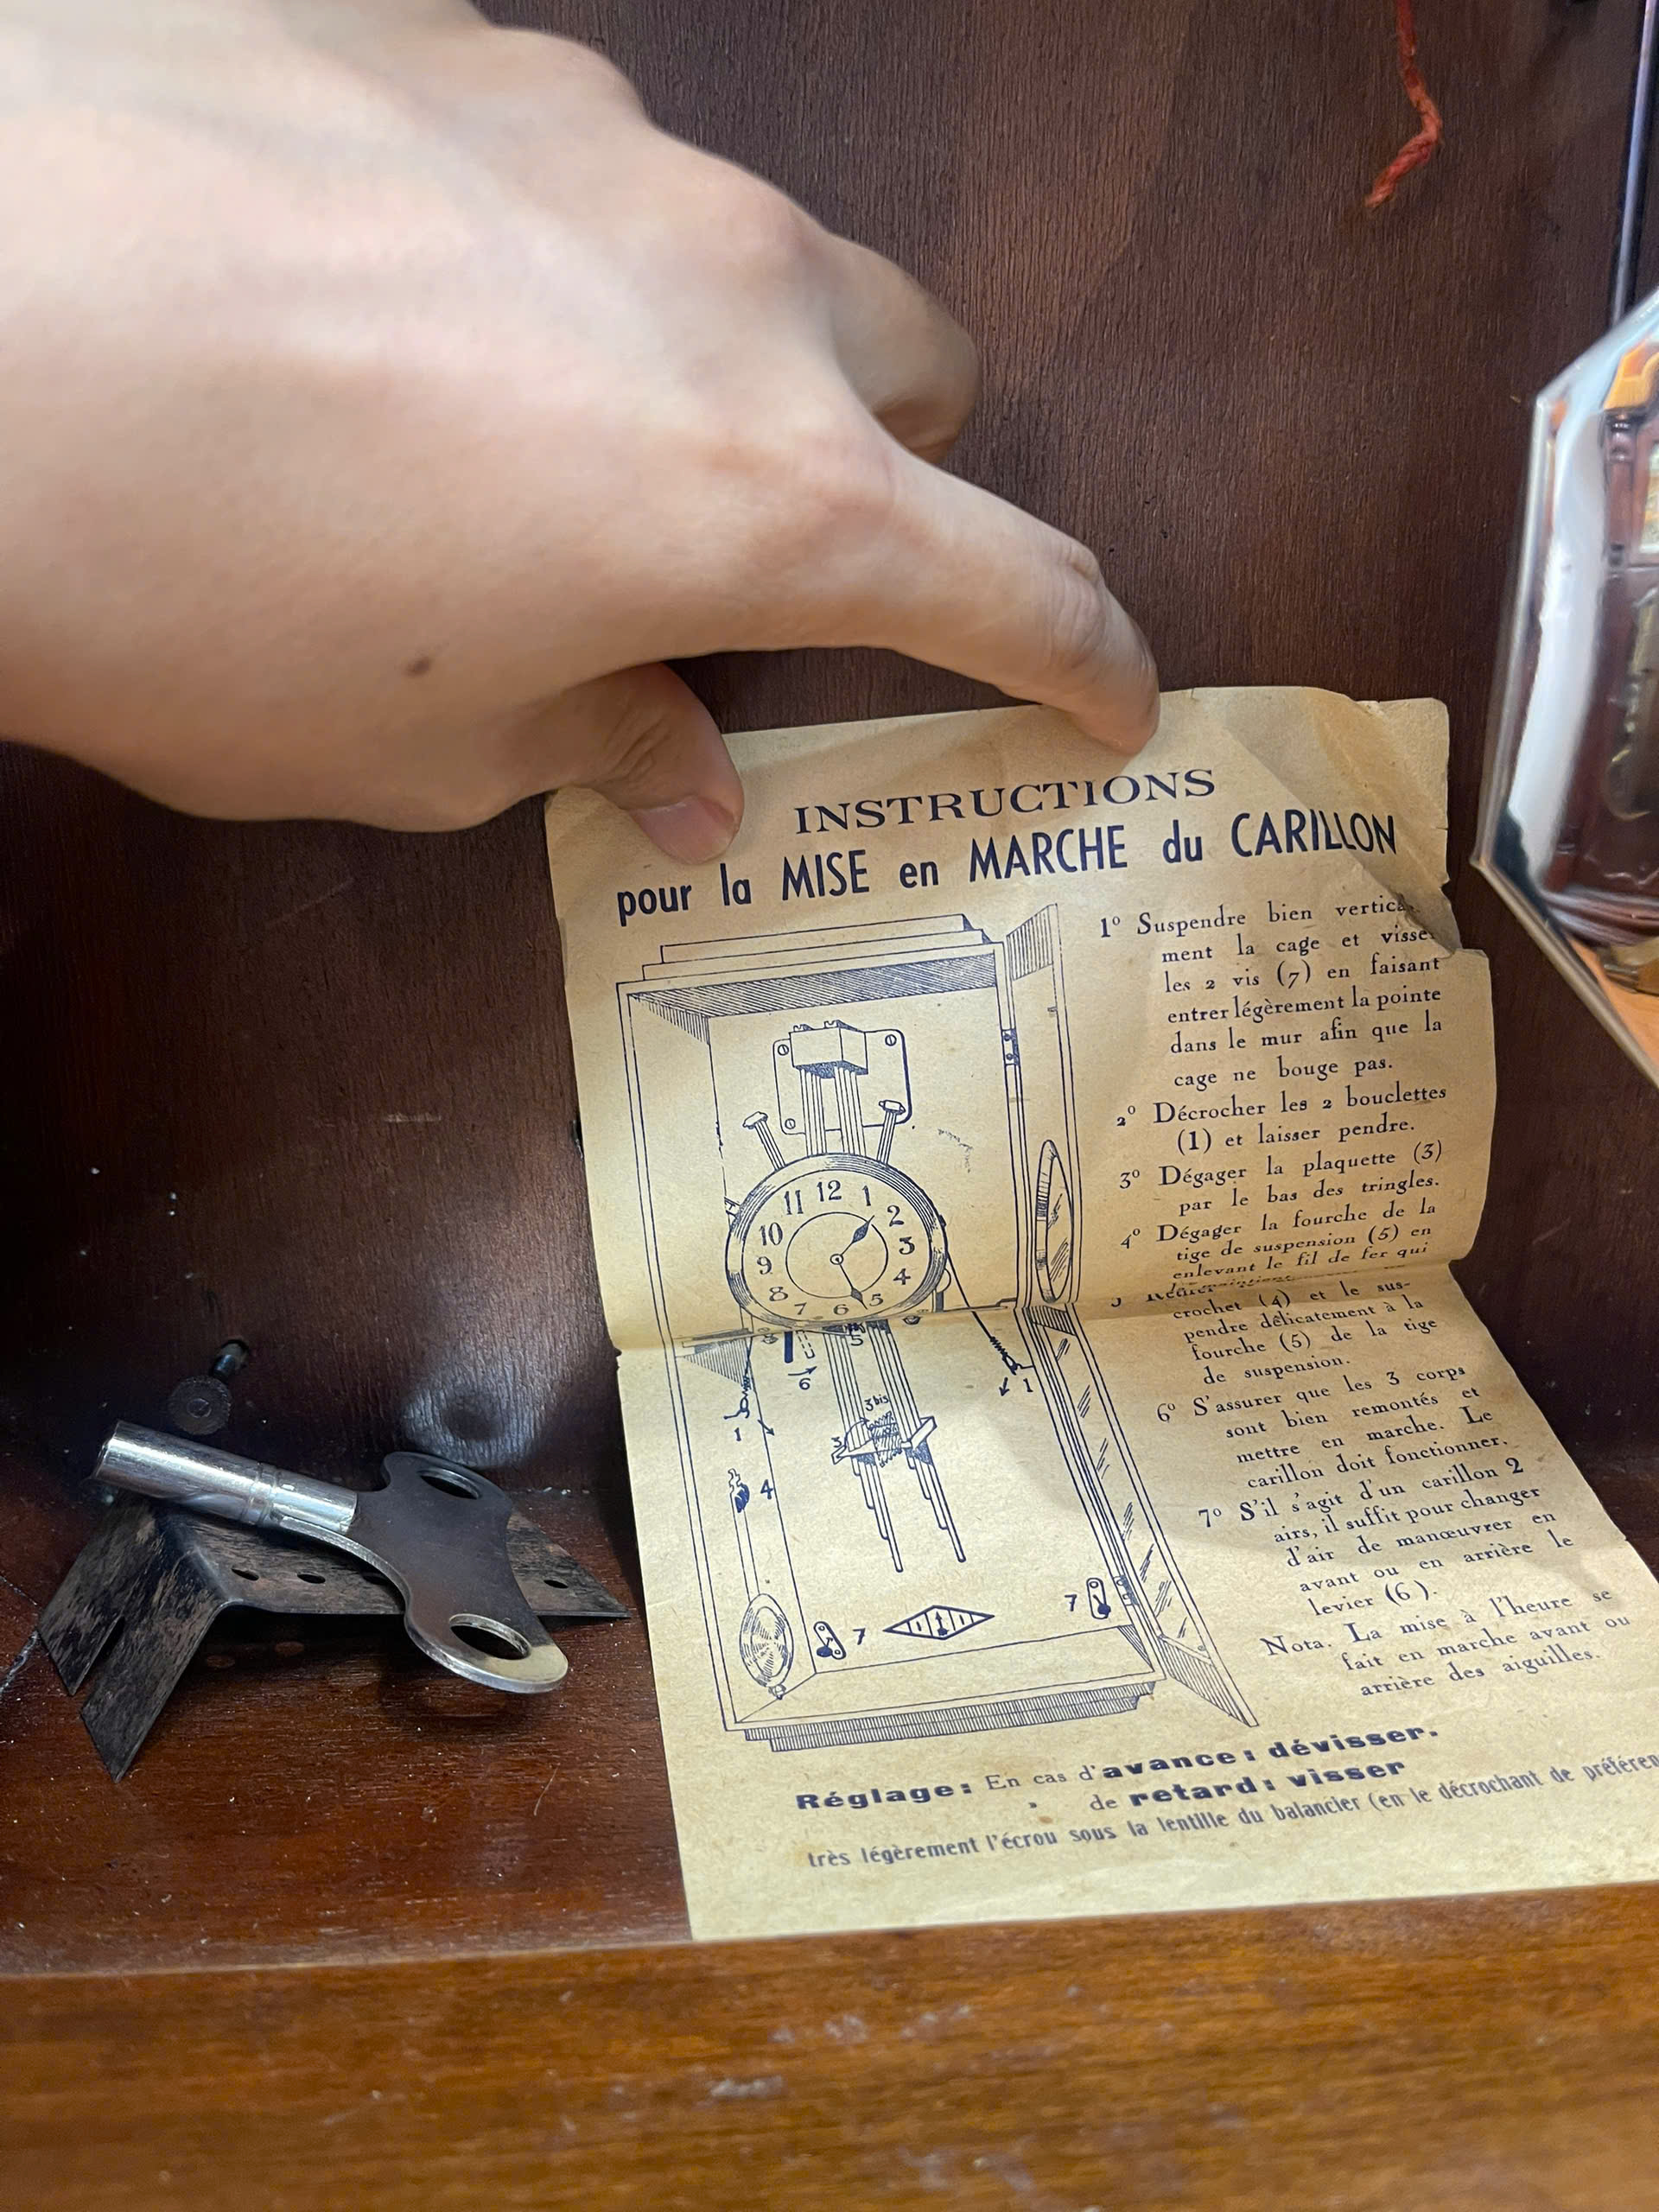 INSTRUCTIONS
pour la MISE en MARCHE du CARILLON
1º Suspendre bien
ment la cage et
les 2 vis (7) en faisant
entrer légèrement la pointe
dans le mur afin que la
cage ne bouge pas.
2º Décrocher les 2 bouclettes
(1) et laisser pendre.
3º Dégager la plaquette (3)
par le bas des tringles.
4º Dégager la fourche de la
tige de suspension (5) en
enlevant le fil de fer qui
crochet (4) et le sus-
pendre délicatement à la
fourche (5) de la tige
de suspension.
6º S'assurer que les 3 corps
sont bien remontés et
mettre en marche. Le
carillon doit fonctionner.
7º S'il s'agit d'un carillon 2
airs, il suffit pour changer
d'air de manœuvrer en
avant ou en arrière le
levier (6).
Nota. La mise à l'heure se
fait en marche avant ou
arrière des aiguilles.
12
1
2
3
4
5
6
7
8
9
10
11
5
6
1
1
3 bis
3
4
7
7
Réglage : En cas d'avance : dévisser.
de retard : visser
très légèrement l'écrou sous la lentille du balancier (en le décrochant de